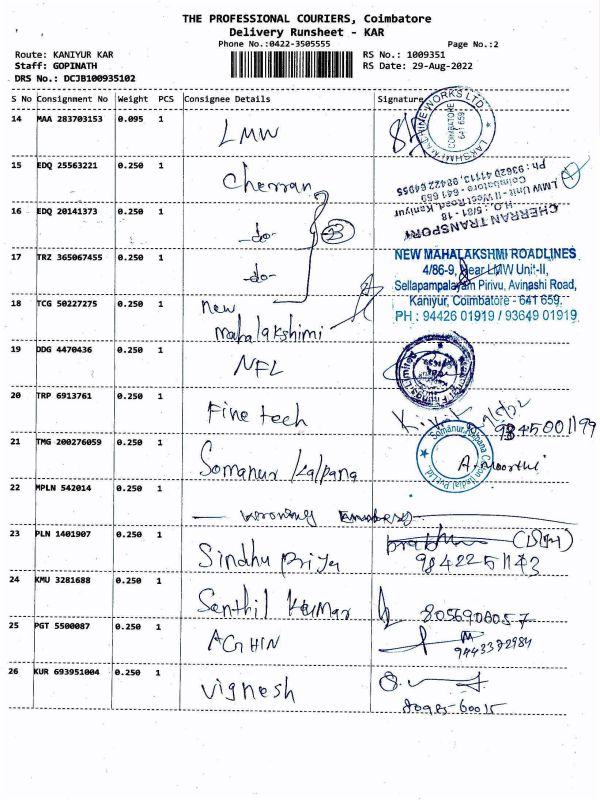 THE PROFESSIONAL COURIERS, Coimbatore
Delivery Runsheet - KAR
Phone No.:0422-3505555 Page No.:2
Route: KANIYUR KAR RS No.: 1009351
Staff: GOPINATH RS Date: 29-Aug-2022
DRS No.: DCJB100935102
S No Consignment No Weight PCS Consignee Details Signature
14 MAA 283703153 0.095 1 LMW
LAKSHMI MACHINE WORKS LTD
COIMBATORE
641 659
15 EDQ 25563221 0.250 1 Cherran
16 EDQ 20141373 0.250 1 -do-
CHERRAN TRANSPORT
H.O.: 5/81 - 18
LMW Unit - II West Road, Kaniyur
Coimbatore - 641 659
Ph : 93620 41113, 98422 64955
17 TRZ 365067455 0.250 1 -do-
NEW MAHALAKSHMI ROADLINES
4/86-9, Near LMW Unit-II,
Sellapampalayam Pirivu, Avinashi Road,
Kaniyur, Coimbatore - 641 659.
PH : 94426 01919 / 93649 01919
18 TCG 50227275 0.250 1 New
Mahalakshimi
19 DDG 4470436 0.250 1 NFL
20 TRP 6913761 0.250 1 Fine tech
9845001199
21 TMG 200276059 0.250 1 Somanur Kalpana
A. Moorthi
22 MPLN 542014 0.250 1
23 PLN 1401907 0.250 1 Sindhu Priya
9842251173
24 KMU 3281688 0.250 1 Senthil Kumar 8056908057
25 PGT 5500087 0.250 1 AGHIN
9443372984
26 KUR 693951004 0.250 1 Vignesh
80985-60015